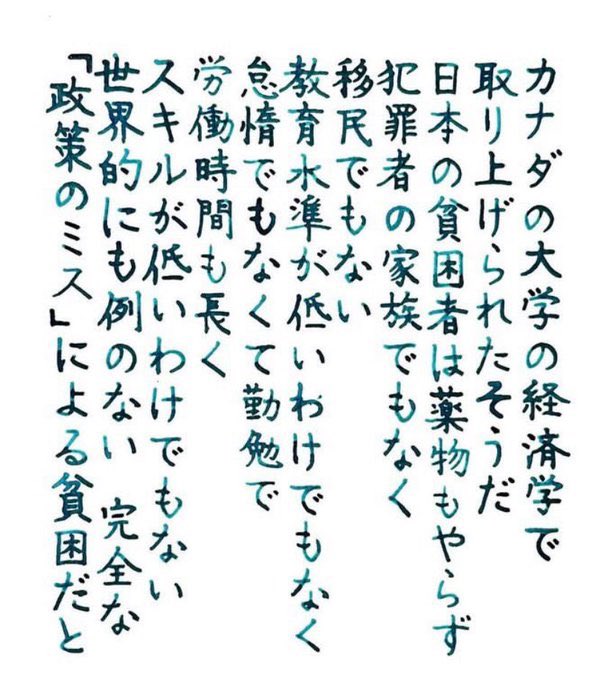 カナダの大学の経済学で
取り上げられたそうだ
日本の貧困者は薬物もやらず
犯罪者の家族でもなく
移民でもない
教育水準が低いわけでもなく
怠惰でもなくて勤勉で
労働時間も長く
スキルが低いわけでもない
世界的にも例のない 完全な
「政策のミス」による貧困だと